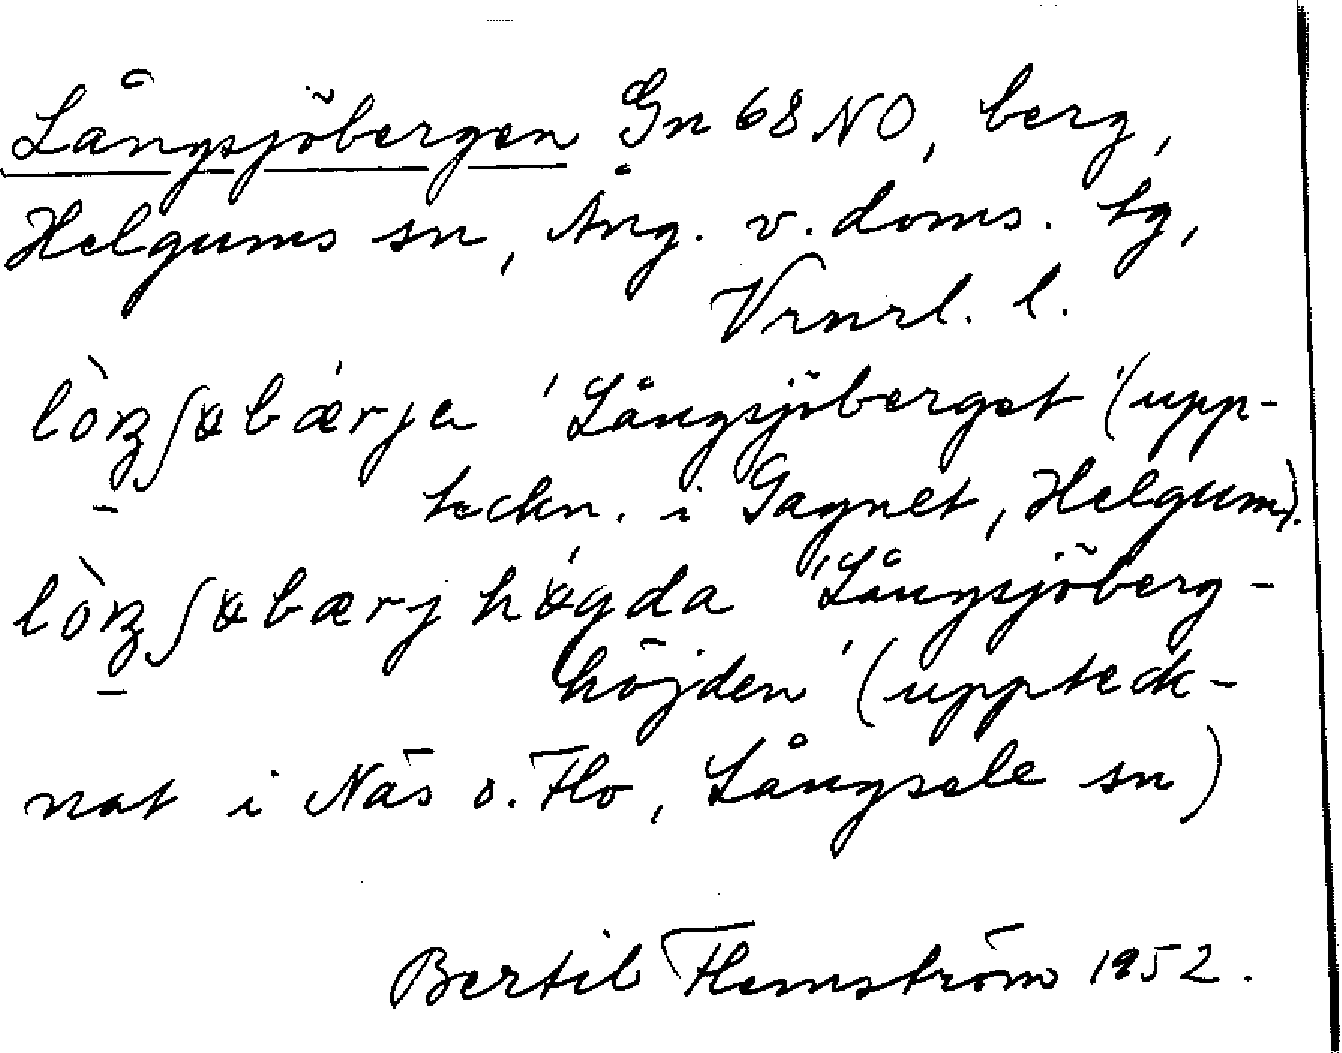 Långsjöbergen Gn 68 NO, berg,
Helgums sn, Ång. v. doms. tg,
Vrnrl. l.
'Långsjöberget' (upp-
teckn. i Gagnet, Helgum).
'Långsjöberg-
höjden' (uppteck-
nat i Näs o. Flo, Långsele sn)
Bertil Flemström 1952.